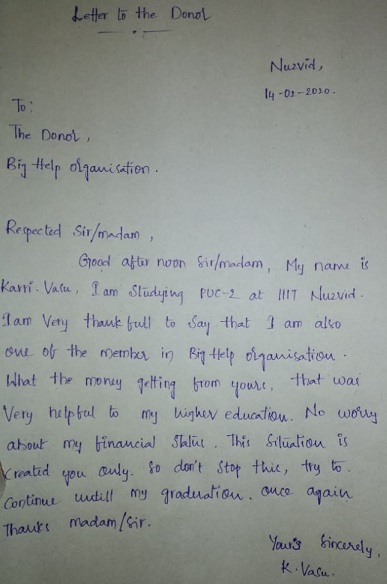 Letter to the Donor
Nuzvid,
14-02-2020.
To:
The Donor,
Big Help organisation.
Respected Sir/madam,
Good after noon Sir/madam, My name is
Karri. Vasu, I am Studying PUC-2 at IIIT Nuzvid.
I am Very thankfull to Say that I am also
one of the member in Big Help organisation.
What the money getting from yours, that was
Very helpful to my higher education. No worry
about my financial Status. This Situation is
created you only. So don't Stop this, try to
Continue untill my graduation. once again
Thanks madam/Sir.
Yours Sincerely,
K. Vasu.